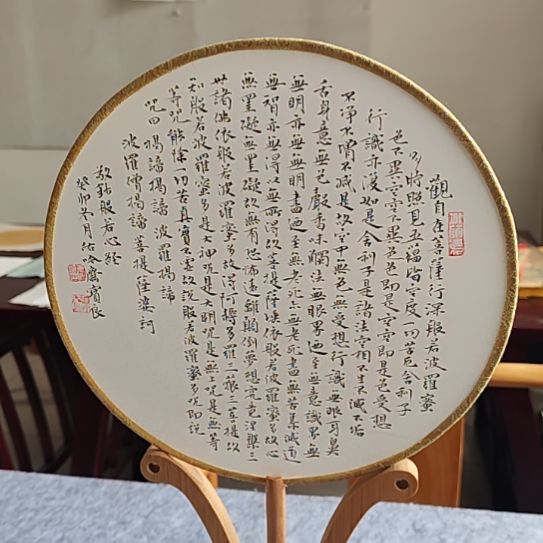 觀自在菩薩行深般若波羅蜜
多時照見五蘊皆空度一切苦厄舍利子
色不異空空不異色色即是空空即是色受想
行識亦復如是舍利子是諸法空相不生不滅不垢
不淨不增不減是故空中無色無受想行識無眼耳鼻
舌身意無色聲香味觸法無眼界迺至無意識界無
無明亦無無明盡迺至無老死亦無老死盡無苦集滅道
無智亦無得以無所得故菩提薩埵依般若波羅蜜多故心
無罣礙無罣礙故無有恐怖遠離顛倒夢想究竟涅槃三
世諸佛依般若波羅蜜多故得阿耨多羅三藐三菩提故
知般若波羅蜜多是大神咒是大明咒是無上咒是無等
等咒能除一切苦真實不虛故說般若波羅蜜多咒即說
咒曰揭諦揭諦波羅揭諦
波羅僧揭諦菩提薩婆訶
敬錄般若心經
癸卯冬月